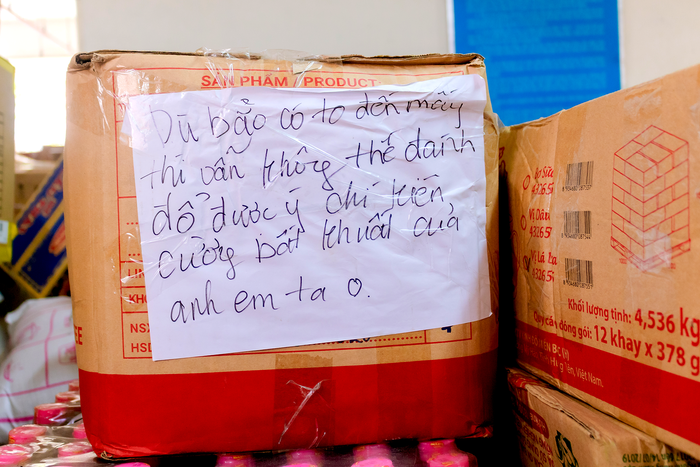 SẢN PHẨM / PRODUCT
Dù bão có to đến mấy
thì vẫn không thể đánh
đổ được ý chí kiên
cường bất khuất của
anh em ta o.
NSX
HSD
Vị Dâu
Khối lượng tịnh: 4,536 kg
Quy cách đóng gói: 12 khay x 378 g
Việt Nam.